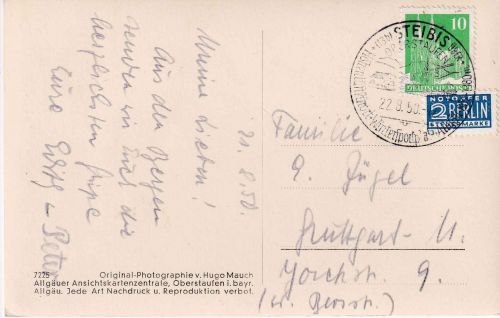 21.8.50.
Meine Lieben!
Aus den Bergen
senden wir Euch die
herzlichsten Grüße
Eure
u. Peter
7225 Original-Photographie v. Hugo Mauch
Allgäuer Ansichtskartenzentrale, Oberstaufen i. bayr.
Allgäu. Jede Art Nachdruck u. Reproduktion verbot.
STEIBIS
OBERSTAUFEN
22.8.50
10
DEUTSCHE POST
NOTOPFER
2 BERLIN
STEUERMARKE
Familie
Stuttgart-
Yorckstr. 9.